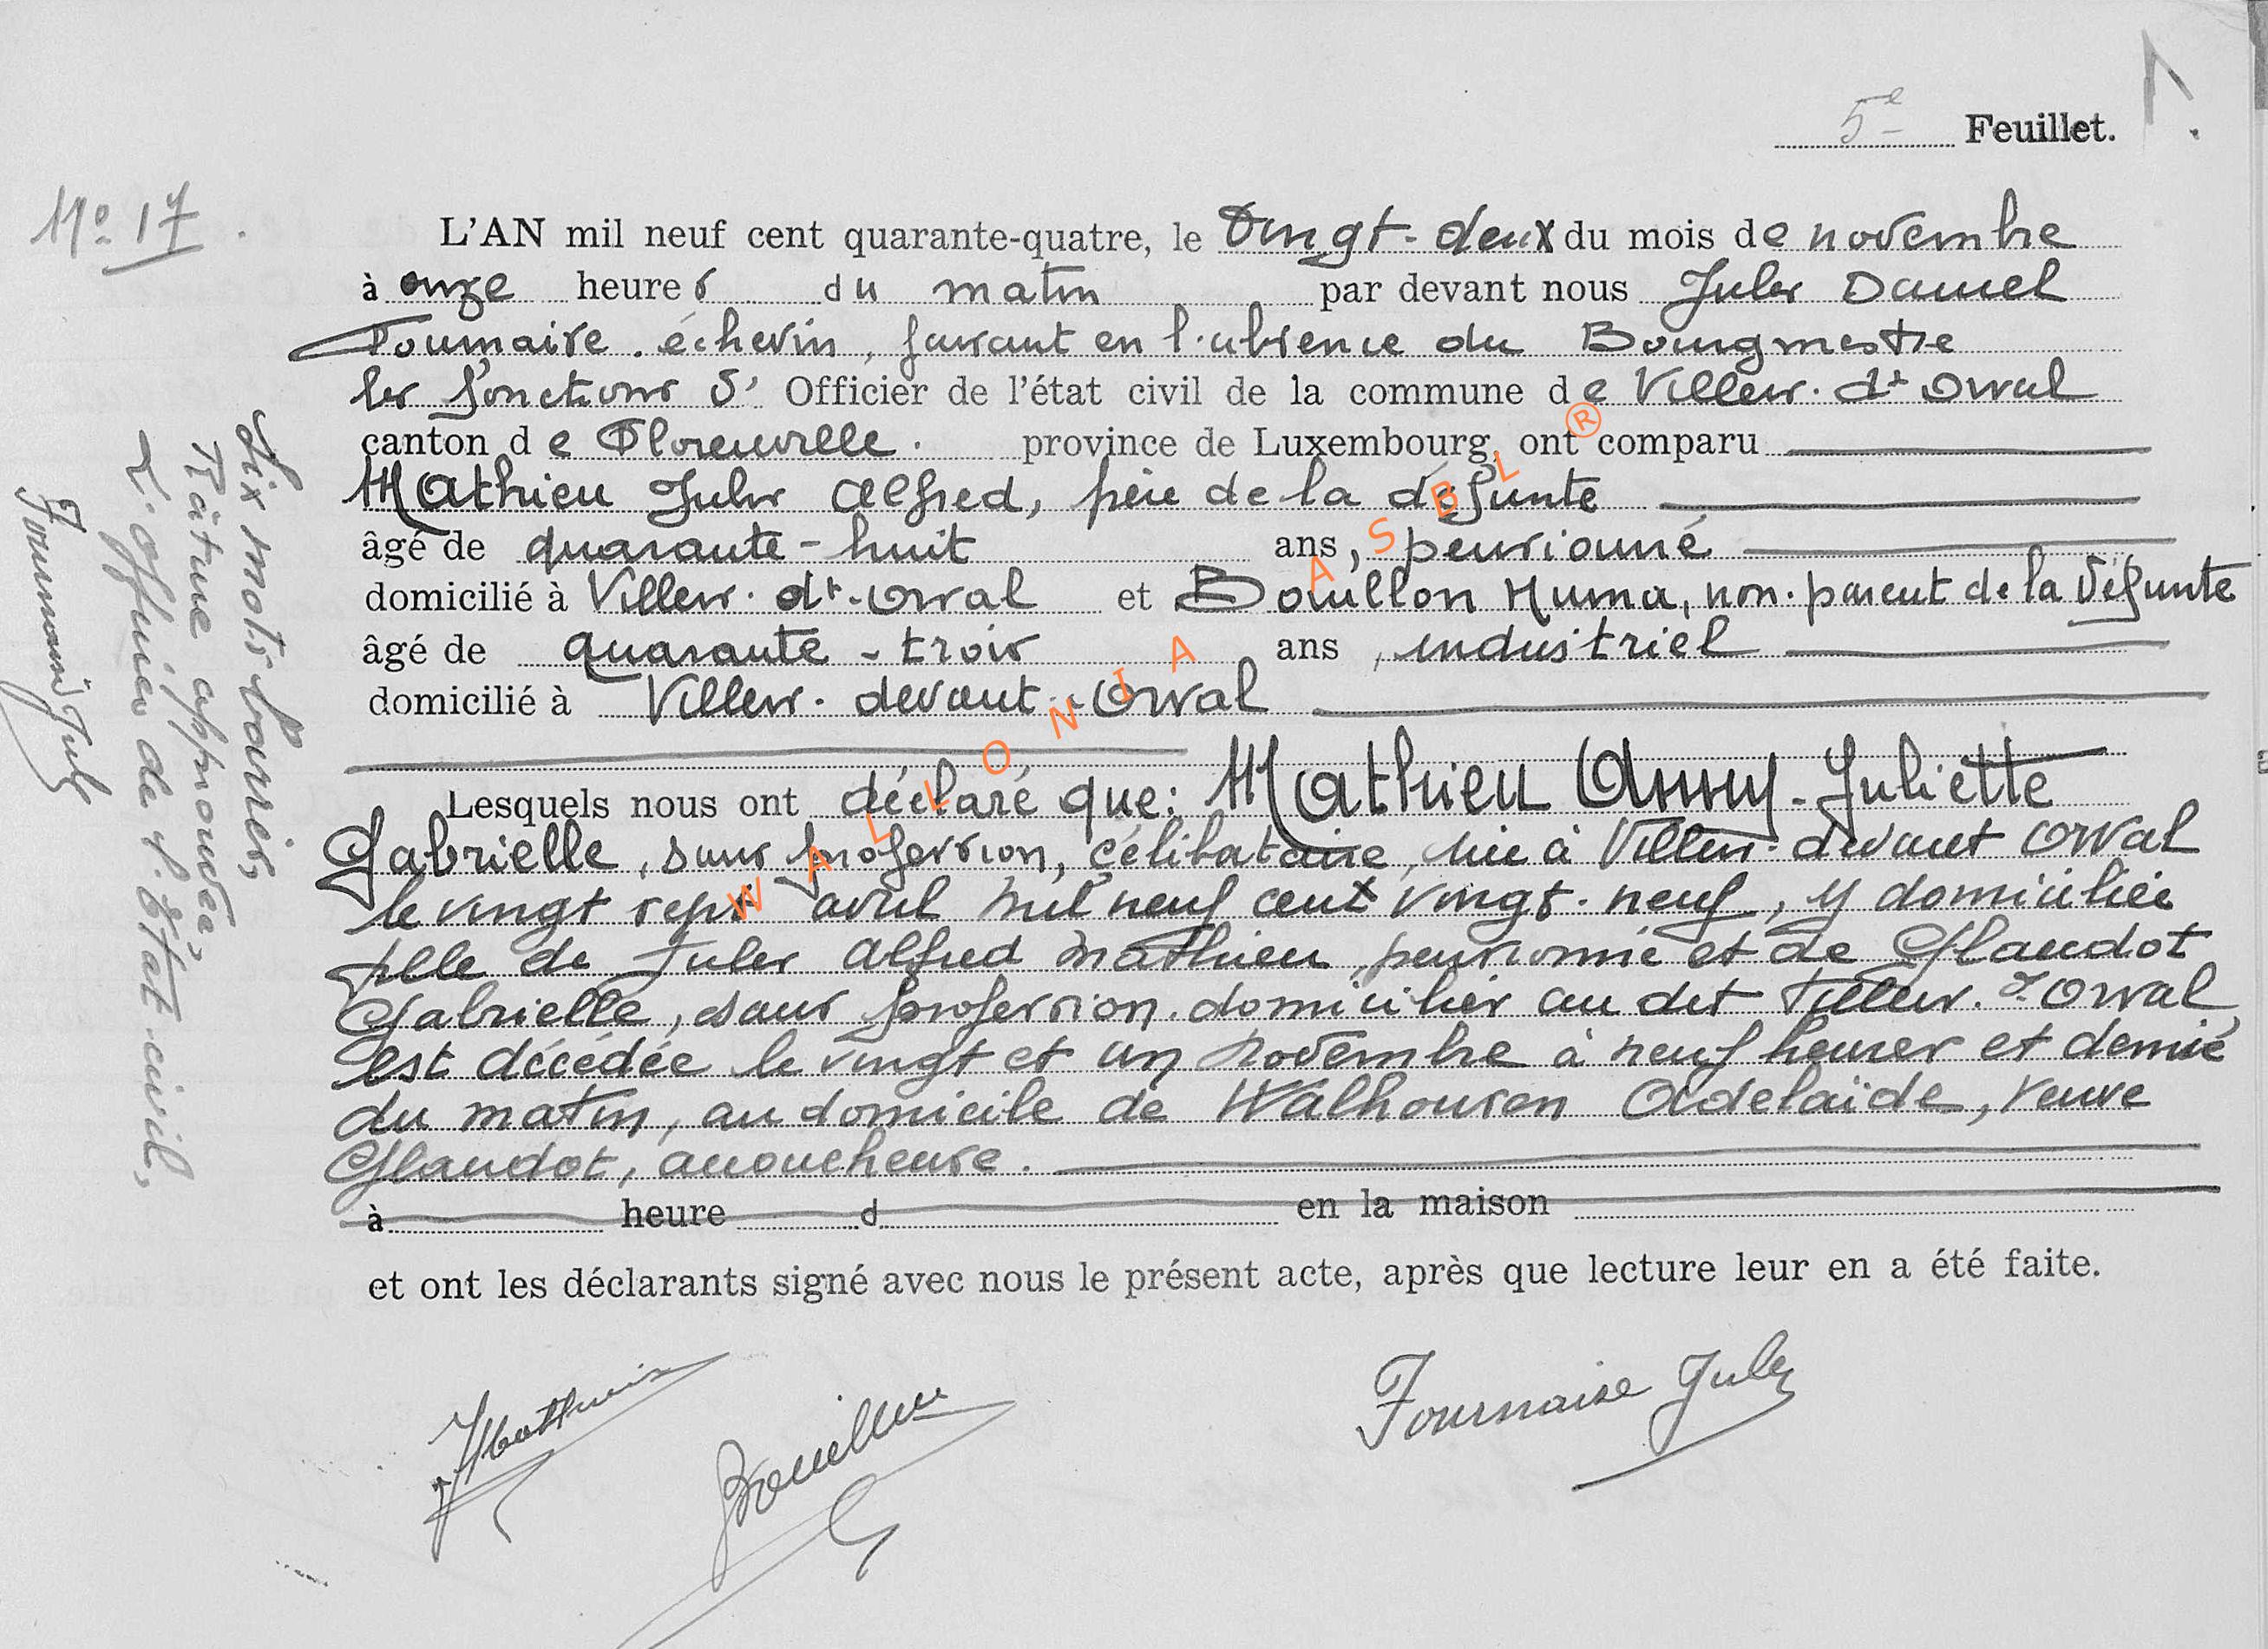 5e Feuillet.
No 17.
L'AN mil neuf cent quarante-quatre, le vingt-deux du mois de novembre
à onze heures du matin par devant nous Jules Daniel
Fournaise. échevin, faisant en l'absence du Bourgmestre
les fonctions d' Officier de l'état civil de la commune de Villers. dt Orval
canton de Florenville. province de Luxembourg, ont comparu
Mathieu Jules Alfred, père de la défunte
âgé de quarante-huit ans, pensionné
domicilié à Villers. dt-Orval et Bouillon Numa, non-parent de la défunte
âgé de quarante-trois ans, industriel
domicilié à Villers-devant-Orval
Lesquels nous ont déclaré que: Mathieu Anny-Juliette
Gabrielle, sans profession, célibataire, née à Villers-devant Orval
le vingt sept avril mil neuf cent vingt-neuf, y domiciliée
fille de Jules Alfred Mathieu, pensionné et de Glaudot
Gabrielle, sans profession. domiciliés au dit Villers. dt Orval,
est décédée le vingt et un novembre à neuf heures et demie
du matin, au domicile de Walhousen Adelaïde, veuve
Glaudot, accoucheuse.
à heure d en la maison
et ont les déclarants signé avec nous le présent acte, après que lecture leur en a été faite.
Six mots barrés,
Râture approuvée,
L'officier de l'État-civil,
Fournaise Jules
JMathieu
Bouillon
Fournaise Jules
WALLONIA ASBL ®